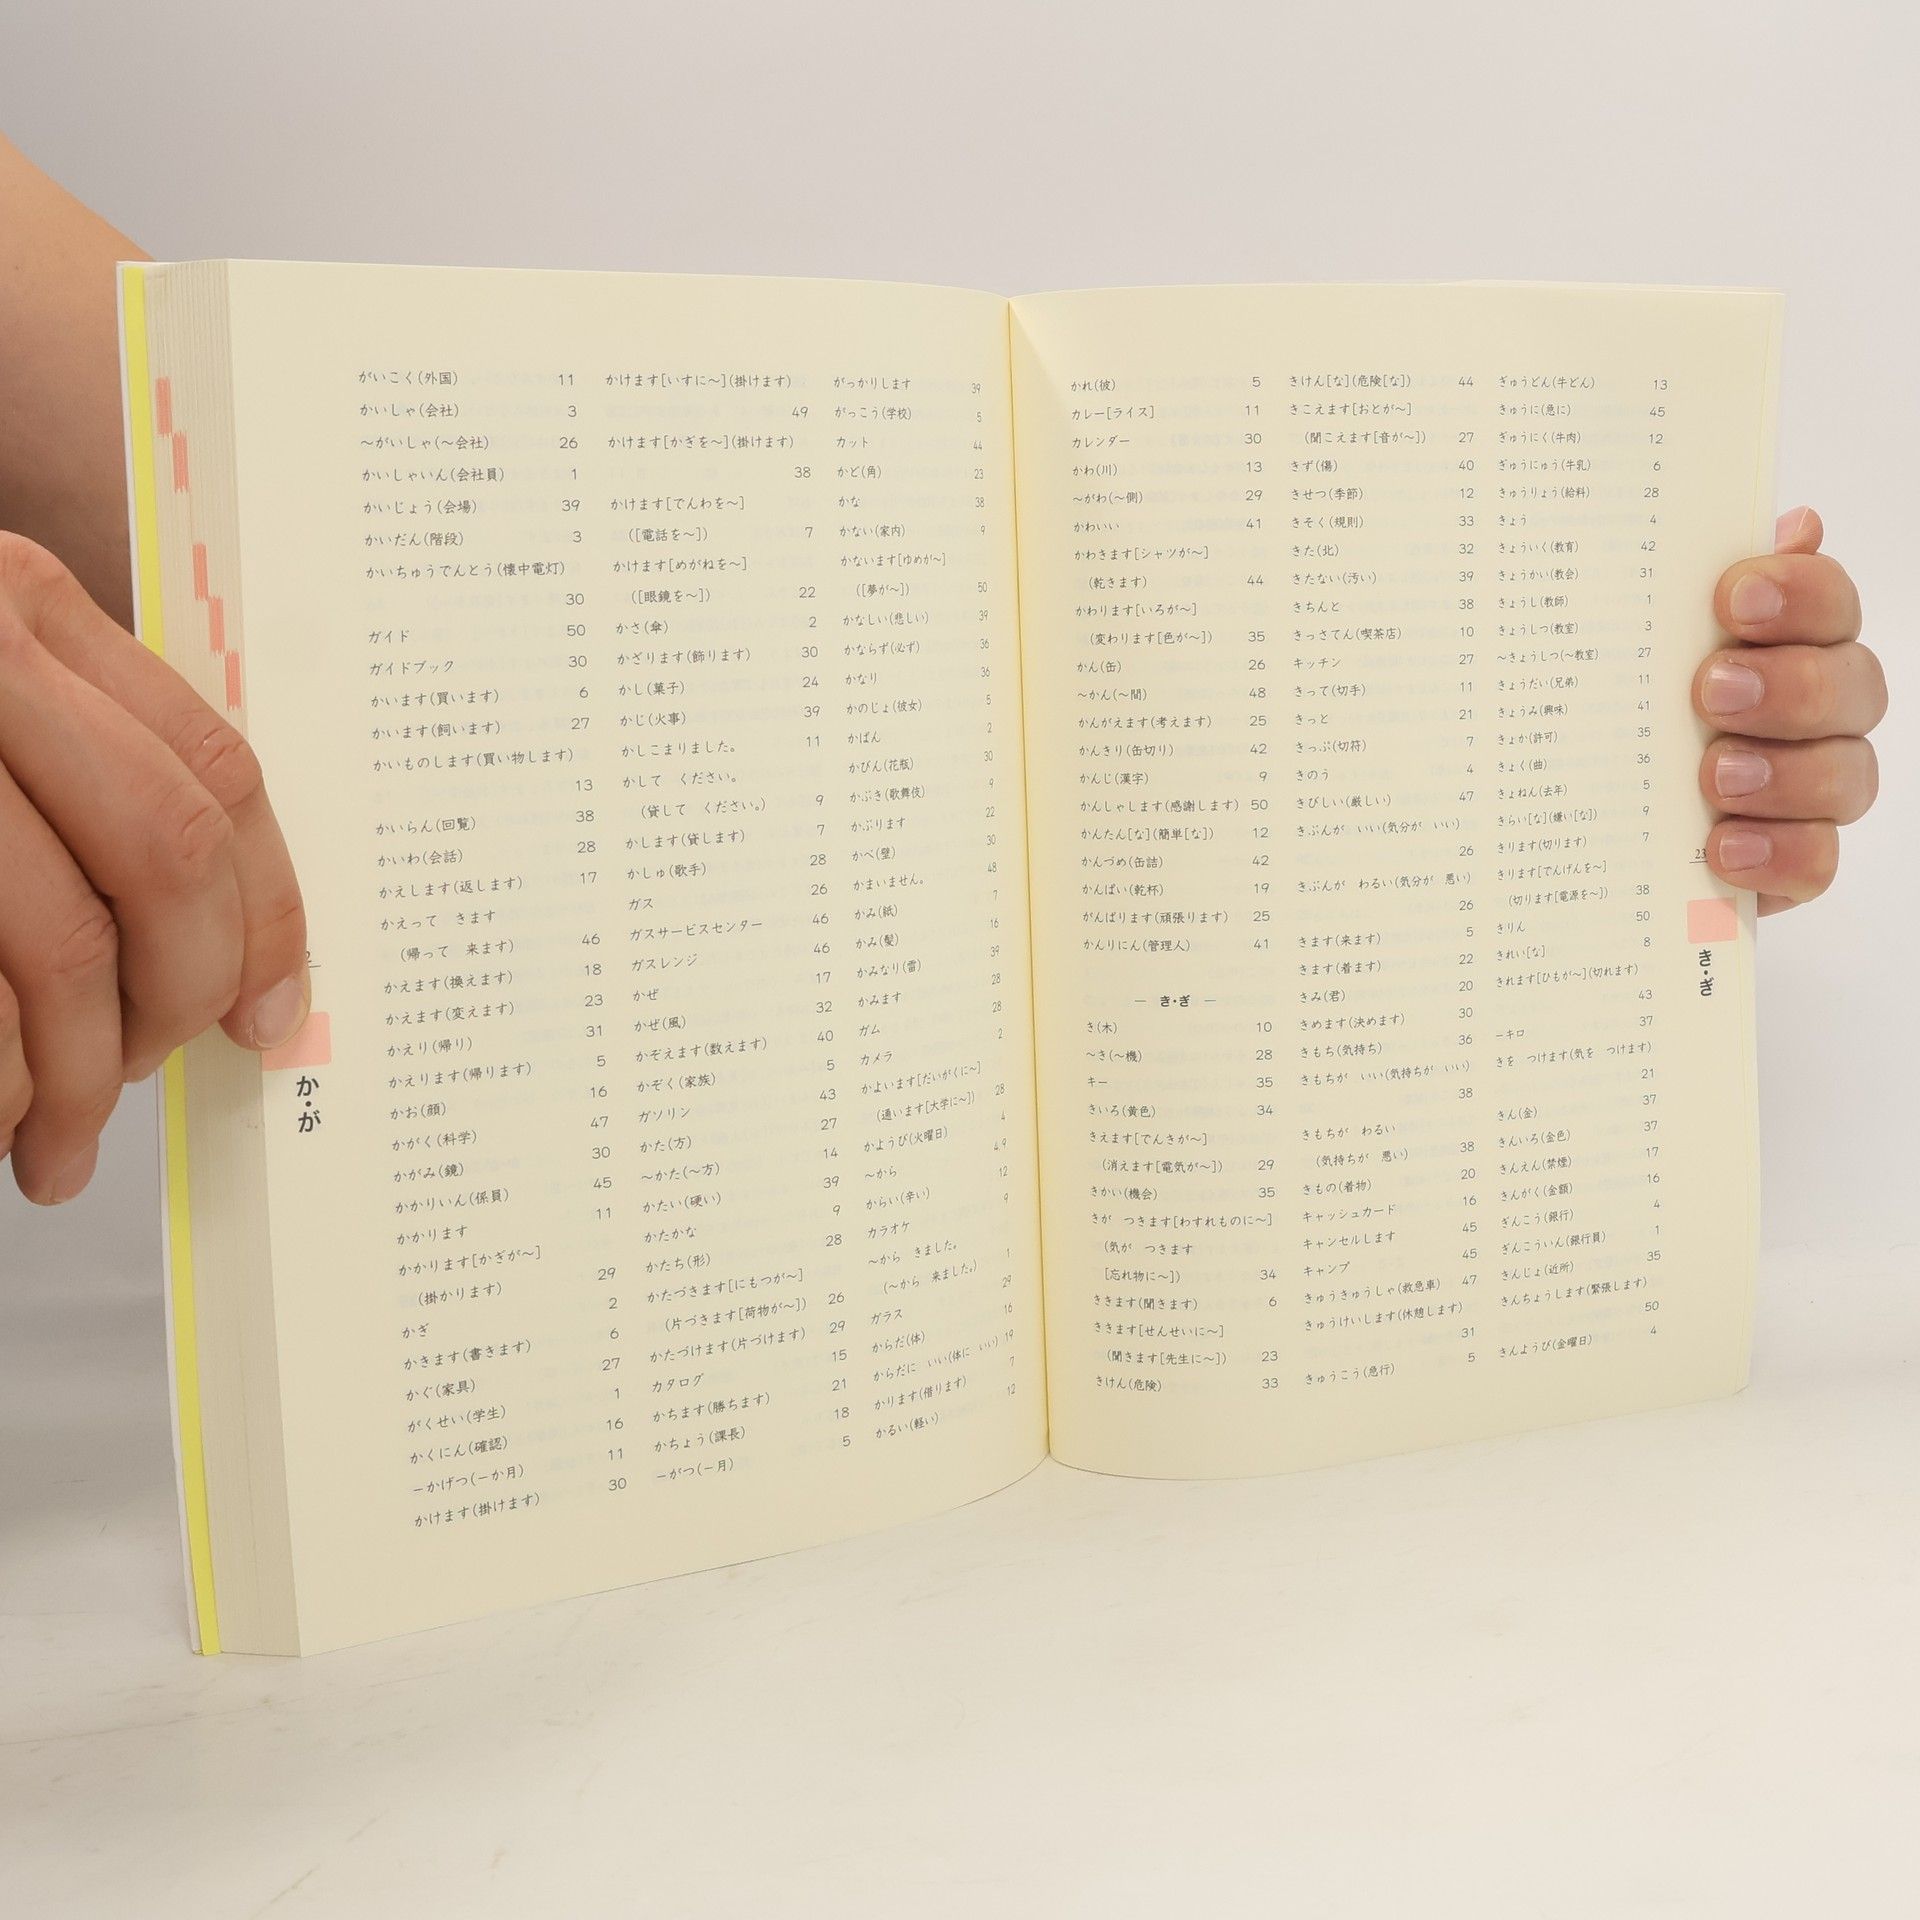 がいこく(外国) 11
かいしゃ(会社) 3
～がいしゃ(～会社) 26
かいしゃいん(会社員) 1
かいじょう(会場) 39
かいだん(階段) 3
かいちゅうでんとう(懐中電灯)
30
ガイド 50
ガイドブック 30
かいます(買います) 6
かいます(飼います) 27
かいものします(買い物します)
13
かいらん(回覧) 38
かいわ(会話) 28
かえします(返します) 17
かえって きます
(帰って 来ます) 46
かえます(換えます) 18
かえます(変えます) 23
かえり(帰り) 31
かえります(帰ります) 5
かお(顔) 16
かがく(科学) 47
かがみ(鏡) 30
かかりいん(係員) 45
かかります 11
かかります[かぎが～]
(掛かります) 29
かぎ 2
かきます(書きます) 6
かぐ(家具) 27
がくせい(学生) 1
かくにん(確認) 16
－かげつ(－か月) 11
かけます(掛けます) 30
かけます[いすに～](掛けます)
49
かけます[かぎを～](掛けます)
38
かけます[でんわを～]
([電話を～]) 7
かけます[めがねを～]
([眼鏡を～]) 22
かさ(傘) 2
かざります(飾ります) 30
かし(菓子) 24
かじ(火事) 39
かしこまりました。 11
かして ください。
(貸して ください。) 9
かします(貸します) 7
かしゅ(歌手) 28
ガス 26
ガスサービスセンター 46
ガスレンジ 46
かぜ 17
かぜ(風) 32
かぞえます(数えます) 40
かぞく(家族) 5
ガソリン 43
かた(方) 27
～かた(～方) 14
かたい(硬い) 39
かたかな 9
かたち(形) 28
かたづきます[にもつが～]
(片づきます[荷物が～]) 26
かたづけます(片づけます) 29
カタログ 15
かちます(勝ちます) 21
かちょう(課長) 18
－がつ(－月) 5
がっかりします 39
がっこう(学校) 5
カット 44
かど(角) 23
かな 38
かない(家内) 9
かないます[ゆめが～]
([夢が～]) 50
かなしい(悲しい) 39
かならず(必ず) 36
かなり 36
かのじょ(彼女) 5
かばん 2
かびん(花瓶) 30
かぶき(歌舞伎) 9
かぶります 22
かべ(壁) 30
かまいません。 48
かみ(紙) 7
かみ(髪) 16
かみなり(雷) 39
かみます 28
ガム 28
カメラ 2
かよいます[だいがくに～]
(通います[大学に～]) 28
かようび(火曜日) 4
～から 4,9
からい(辛い) 12
カラオケ 9
～から きました。
(～から 来ました。) 1
ガラス 29
からだ(体) 16
からだに いい(体に いい) 19
かります(借ります) 7
かるい(軽い) 12
2
か・が
かれ(彼) 5
カレー[ライス] 11
カレンダー 30
かわ(川) 13
～がわ(～側) 29
かわいい 41
かわきます[シャツが～]
(乾きます) 44
かわります[いろが～]
(変わります[色が～]) 35
かん(缶) 26
～かん(～間) 48
かんがえます(考えます) 25
かんきり(缶切り) 42
かんじ(漢字) 9
かんしゃします(感謝します) 50
かんたん[な](簡単[な]) 12
かんづめ(缶詰) 42
かんぱい(乾杯) 19
がんばります(頑張ります) 25
かんりにん(管理人) 41
― き・ぎ ―
き(木) 10
～き(～機) 28
キー 35
きいろ(黄色) 34
きえます[でんきが～]
(消えます[電気が～]) 29
きかい(機会) 35
きが つきます[わすれものに～]
(気が つきます
[忘れ物に～]) 34
ききます(聞きます) 6
ききます[せんせいに～]
(聞きます[先生に～]) 23
きけん(危険) 33
きけん[な](危険[な]) 44
きこえます[おとが～]
(聞こえます[音が～]) 27
きず(傷) 40
きせつ(季節) 12
きそく(規則) 33
きた(北) 32
きたない(汚い) 39
きちんと 38
きっさてん(喫茶店) 10
キッチン 27
きって(切手) 11
きっと 21
きっぷ(切符) 7
きのう 4
きびしい(厳しい) 47
きぶんが いい(気分が いい)
26
きぶんが わるい(気分が 悪い)
26
きます(来ます) 5
きます(着ます) 22
きみ(君) 20
きめます(決めます) 30
きもち(気持ち) 36
きもちが いい(気持ちが いい)
38
きもちが わるい
(気持ちが 悪い) 38
きもの(着物) 20
キャッシュカード 16
キャンセルします 45
キャンプ 45
きゅうきゅうしゃ(救急車) 47
きゅうけいします(休憩します)
31
きゅうこう(急行) 5
ぎゅうどん(牛どん) 13
きゅうに(急に) 45
ぎゅうにく(牛肉) 12
ぎゅうにゅう(牛乳) 6
きゅうりょう(給料) 28
きょう 4
きょういく(教育) 42
きょうかい(教会) 31
きょうし(教師) 1
きょうしつ(教室) 3
～きょうしつ(～教室) 27
きょうだい(兄弟) 11
きょうみ(興味) 41
きょか(許可) 35
きょく(曲) 36
きょねん(去年) 5
きらい[な](嫌い[な]) 9
きります(切ります) 7
きります[でんげんを～]
(切ります[電源を～]) 38
きりん 50
きれい[な] 8
きれます[ひもが～](切れます)
43
－キロ 37
きを つけます(気を つけます)
21
きん(金) 37
きんいろ(金色) 37
きんえん(禁煙) 17
きんがく(金額) 16
ぎんこう(銀行) 4
ぎんこういん(銀行員) 1
きんじょ(近所) 35
きんちょうします(緊張します)
50
きんようび(金曜日) 4
23
き・ぎ